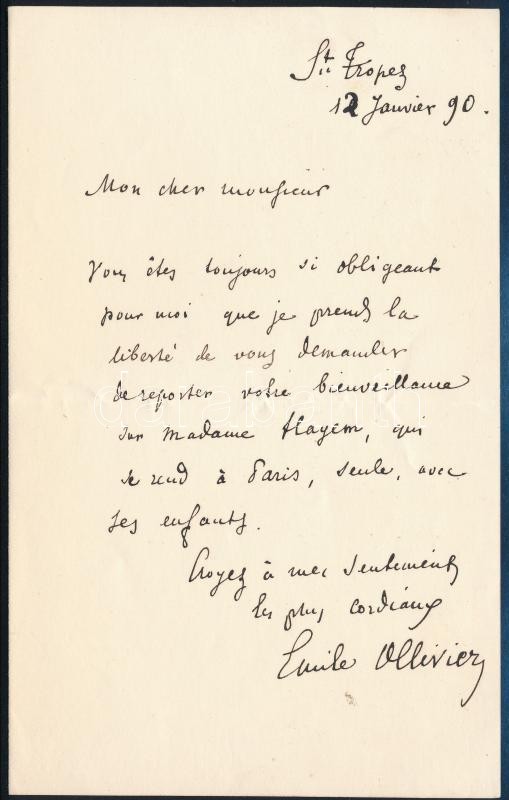 St Tropez
12 Janvier 90.
Mon cher monsieur
Vous êtes toujours si obligeant
pour moi que je prends la
liberté de vous demander
de reporter votre bienveillance
sur Madame Hayem, qui
se rend à Paris, seule, avec
ses enfants.
Croyez à mes sentements
les plus cordiaux
Emile Ollivier